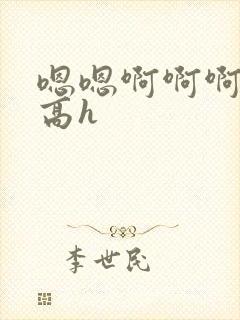 嗯嗯啊啊啊
高h
李世民